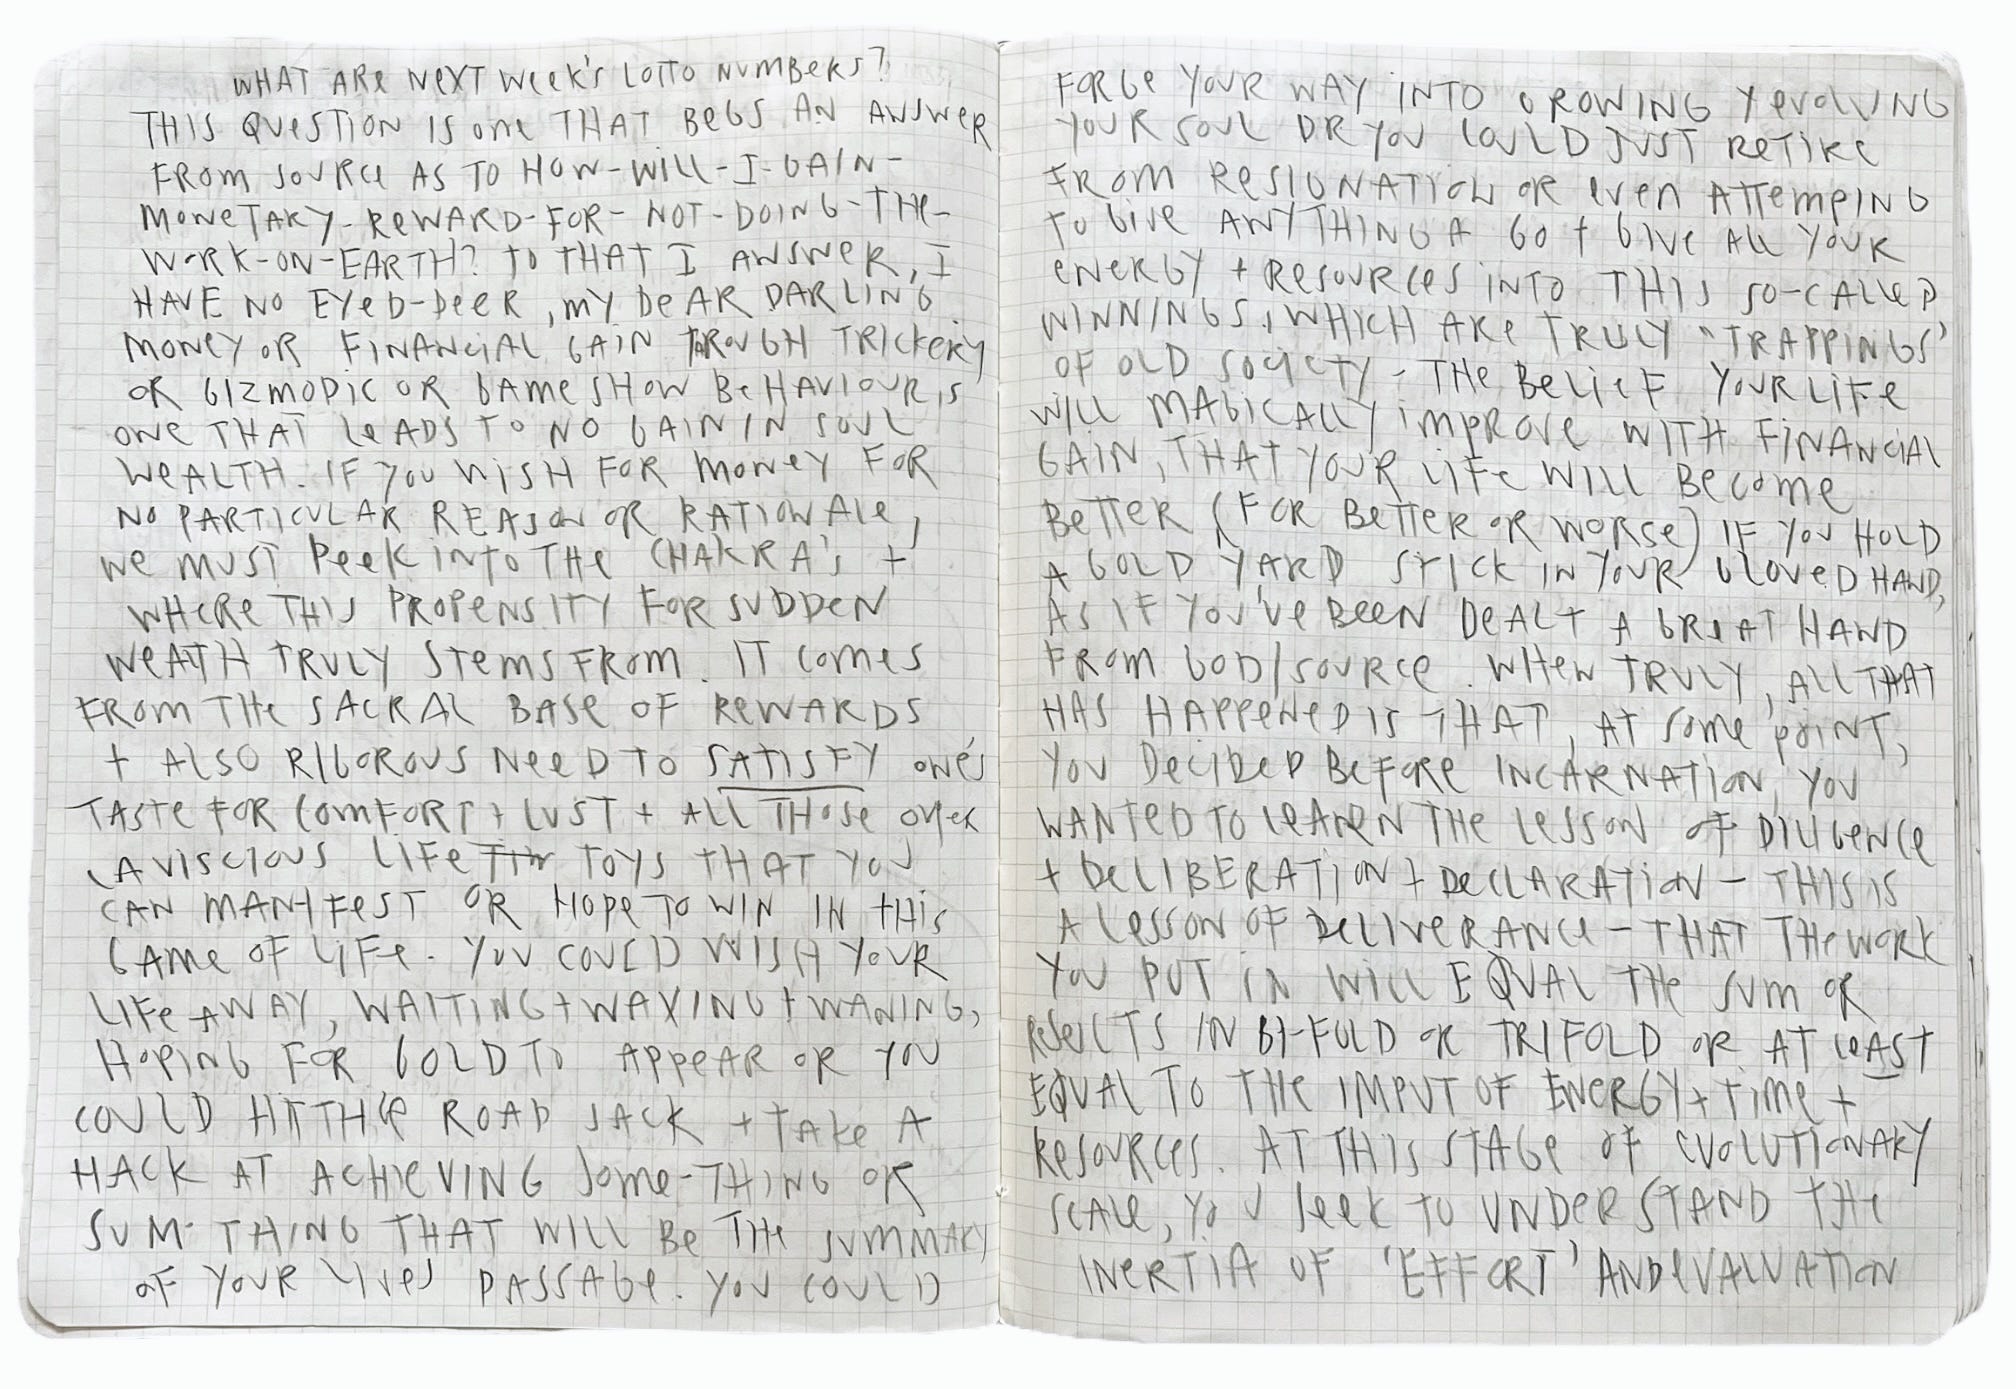 WHAT ARE NEXT WEEK'S LOTTO NUMBERS?
THIS QUESTION IS ONE THAT BEGS AN ANSWER
FROM SOURCE AS TO HOW-WILL-I-GAIN-
MONETARY-REWARD-FOR-NOT-DOING-THE-
WORK-ON-EARTH? TO THAT I ANSWER, I
HAVE NO EYED-DEER, MY DEAR DARLING
MONEY OR FINANCIAL GAIN THROUGH TRICKERY
OR GIZMODIC OR GAMESHOW BEHAVIOUR IS
ONE THAT LEADS TO NO GAIN IN SOUL
WEALTH. IF YOU WISH FOR MONEY FOR
NO PARTICULAR REASON OR RATIONALE,
WE MUST PEEK INTO THE CHAKRA'S +
WHERE THIS PROPENSITY FOR SUDDEN
WEATH TRULY STEMS FROM. IT COMES
FROM THE SACRAL BASE OF REWARDS
+ ALSO RIGOROUS NEED TO SATISFY ONE'S
TASTE FOR COMFORT + LUST + ALL THOSE OTHER
LAVISCIOUS LIFE TOYS THAT YOU
CAN MANIFEST OR HOPE TO WIN IN THIS
GAME OF LIFE. YOU COULD WISH YOUR
LIFE AWAY, WAITING + WAXING + WANING,
HOPING FOR GOLD TO APPEAR OR YOU
COULD HIT THE ROAD JACK + TAKE A
HACK AT ACHIEVING SOME-THING OR
SUM-THING THAT WILL BE THE SUMMARY
OF YOUR LIVES PASSAGE. YOU COULD
FORGE YOUR WAY INTO GROWING Y EVOLVING
YOUR SOUL OR YOU COULD JUST RETIRE
FROM RESIGNATION OR EVEN ATTEMPING
TO GIVE ANYTHING A GO + GIVE ALL YOUR
ENERGY + RESOURCES INTO THIS SO-CALLED
WINNINGS, WHICH ARE TRULY "TRAPPINGS"
OF OLD SOCIETY - THE BELIEF YOUR LIFE
WILL MAGICALLY IMPROVE WITH FINANCIAL
GAIN, THAT YOUR LIFE WILL BECOME
BETTER (FOR BETTER OR WORSE) IF YOU HOLD
A GOLD YARD STICK IN YOUR GLOVED HAND,
AS IF YOU'VE BEEN DEALT A GREAT HAND
FROM GOD/SOURCE. WHEN TRULY, ALL THAT
HAS HAPPENED IS THAT, AT SOME POINT,
YOU DECIDED BEFORE INCARNATION, YOU
WANTED TO LEARN THE LESSON OF DILIGENCE
+ DELIBERATION + DECLARATION - THIS IS
A LESSON OF DELIVERANCE - THAT THE WORK
YOU PUT IN WILL EQUAL THE SUM OR
RESULTS IN BI-FOLD OR TRIFOLD OR AT LEAST
EQUAL TO THE IMPUT OF ENERGY + TIME +
RESOURCES. AT THIS STAGE OF EVOLUTIONARY
SCALE, YOU SEEK TO UNDERSTAND THE
INERTIA OF 'EFFORT' AND EVALUATION